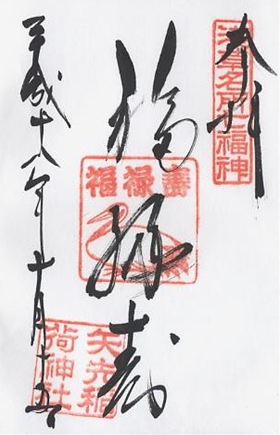 奉拝
浅草名所七福神
福禄寿
福禄壽
平成十八年十月十五日
矢先稲荷神社